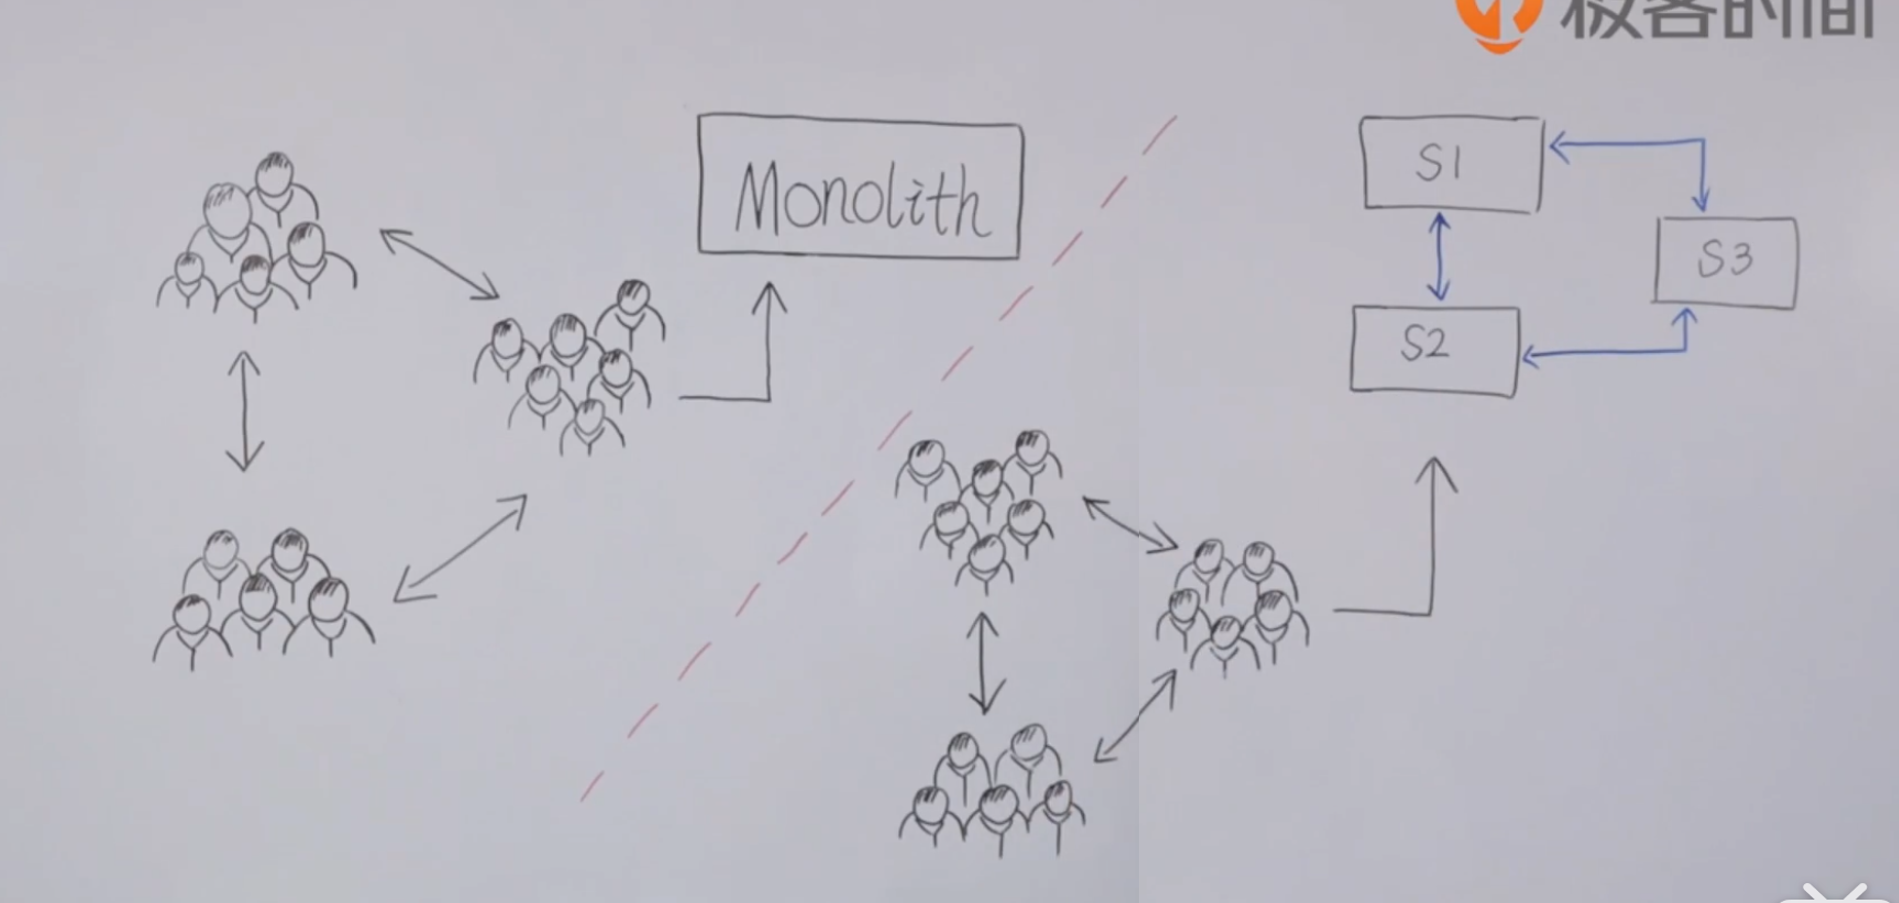 极客时间
Monolith
S1
S3
S2